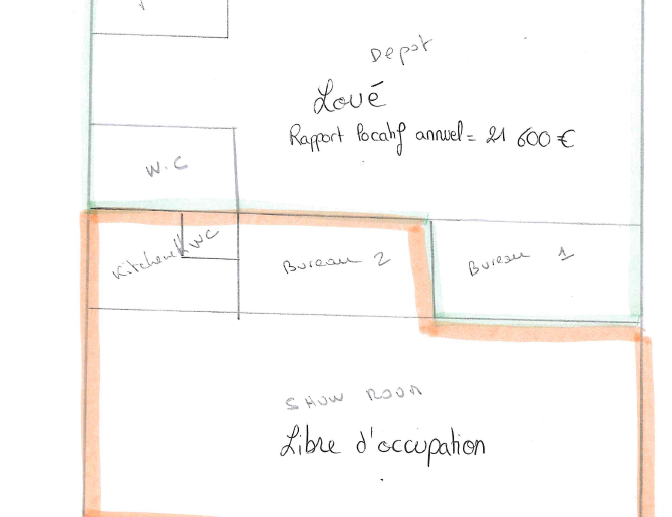 Depot
Loué
Rapport locatif annuel = 21 600 €
W.C
Kitchenett WC
Bureau 2
Bureau 1
SHOW ROOM
Libre d'occupation